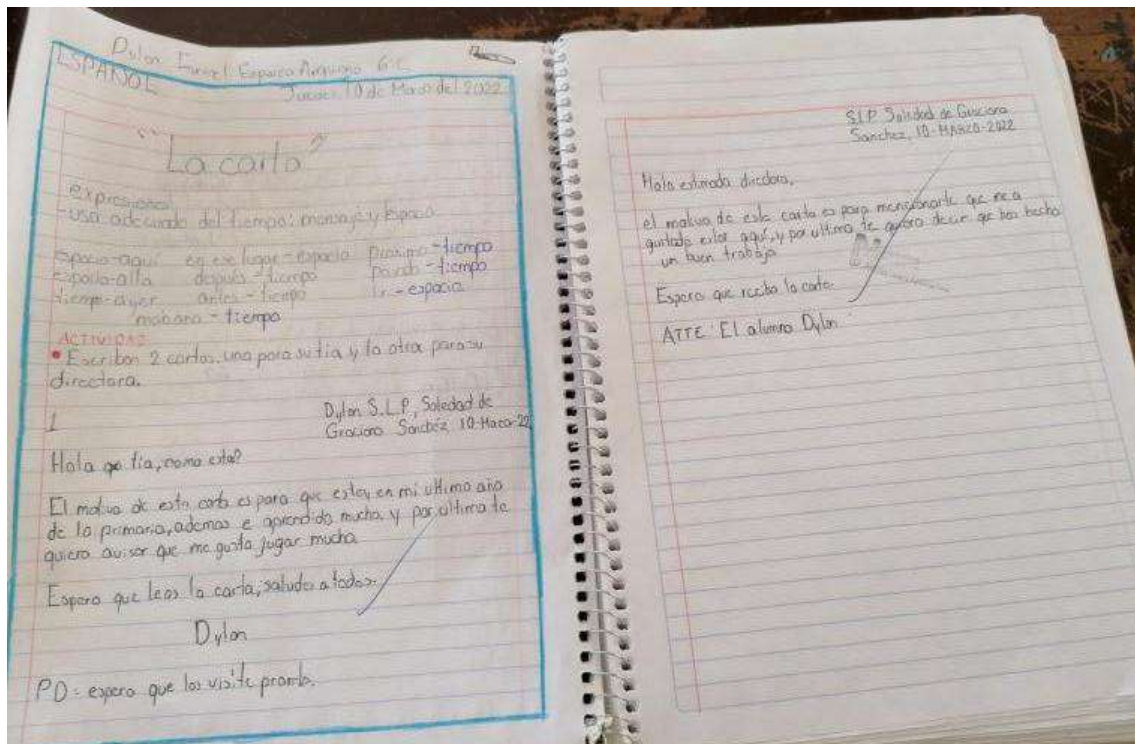 Dylan Esparza 6.C
ESPAÑOL
Jueves 10 de Marzo del 2022
"La carta"
expresiones
-uso adecuado del tiempo: mensaje y espacio
espacio-aqui en ese lugar-espacio proximo-tiempo
espacio-alla después-tiempo pasado-tiempo
tiempo-ayer antes-tiempo Ir-espacio
mañana-tiempo
ACTIVIDAD
• Escriban 2 cartas, una para su tia y la otra para su
directora.
1
Dylan S.L.P, Soledad de
Graciano Sanchéz 10-Marzo-22
Hola tia, como esta?
El motivo de esta carta es para que estoy en mi ultimo año
de la primaria, ademas e aprendido mucho y por ultimo te
quiero avisar que me gusta jugar mucho
Espero que leas la carta, saludes a todos.
Dylan
PD= espero que los visite pronto.
S.L.P Soledad de Graciano
Sanchez, 10-MARZO-2022
Hola estimada directora,
el motivo de esta carta es para mencionarte que me a
gustado estar aquí, y por ultimo te quiero decir que has hecho
un buen trabajo
Espero que reciba la carta.
ATTE: El alumno Dylan